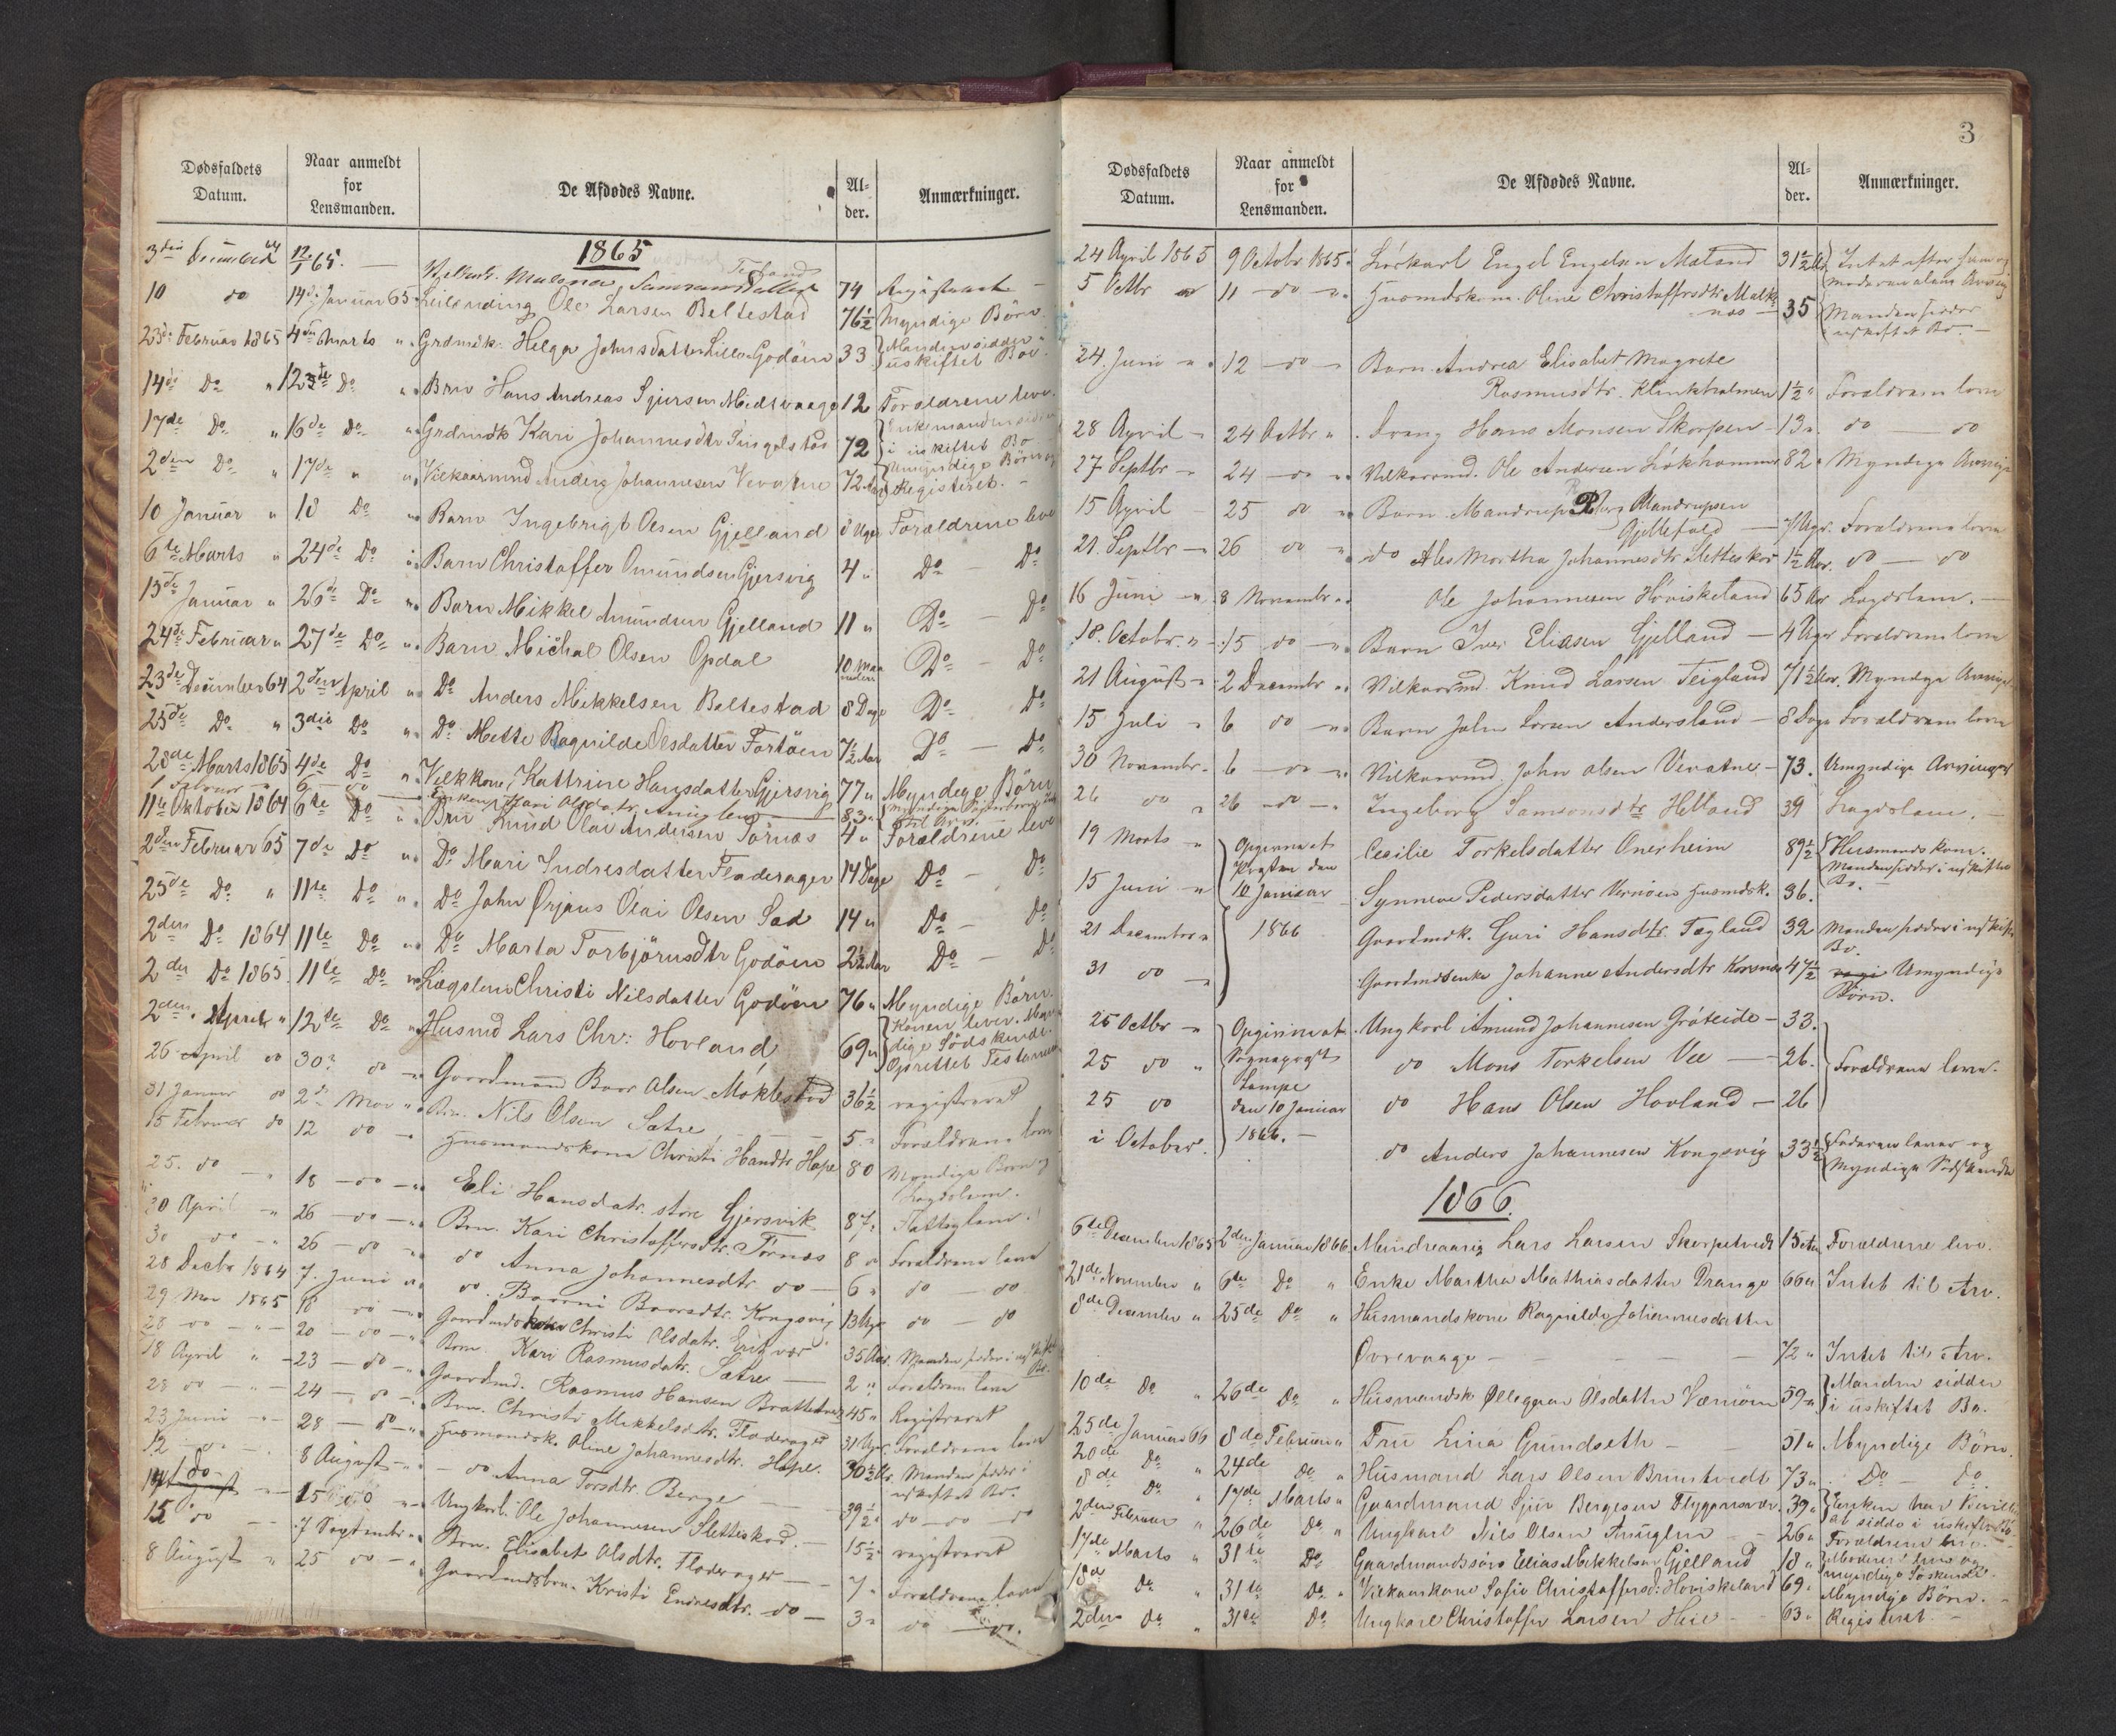 Dødsfaldets Datum. Naar anmeldt for Lensmanden. De Afdødes Navne. Alder. Anmærkninger.
1865
3die December 64 12/1 65. Malena Samsonsdatter Teigland 74 Registreret
10 do 14de Januar 65 Leilænding Ole Larsen Beltestad 76½ Myndige Børn.
23de Februar 1865 4de Marts " Grdmdk. Helga Johnsdatter Lille Godøen 33 Manden sidder i uskiftet Bo.
14de Do " 12te Do " Brn Hans Andreas Sjursen Midtvaage 12 Forældrene leve.
17de Do " 16de Do " Grdmdk Kari Johannesdtr Singelstad 72 Enkemanden sidder i uskiftet Bo
2den Do " 17de " " Vilkaarmnd Anders Johannesen Vevatne 72 Aar Umyndige Børn og Registeret.
10 Januar " 18 Do " Barn Ingebrigt Olsen Gjelland 8 Uger Forældrene leve
6te Marts " 24de Do " Barn Christoffer Omundsen Gjersvig 4 " Do - Do
13de Januar " 26de Do " Barn Mikkel Amundsen Gjelland 11 " Do - Do
24de Februar " 27de Do " Barn Michal Olsen Opdal 10 Maaneder Do - Do
23de December 64 2den April " Do Anders Mikkelsen Beltestad 8 Dage Do - Do
25de Do " 3die Do " Do Mette Ragnilde Olsdatter Fortøen 7½ Aar Do - Do
28de Marts 1865 4de Do " Vilkkone Kattrine Hansdatter Gjersvig 77 " Myndege Børn
1 Februar 6 do Enken Kari Olsdatr. Anuglen 83 "
11te Oktober 1864 6te Do " Brn Knud Olai Andersen Tørnæs 4 " Forældrene leve
2den Februar 65 7de Do " Do Mari Indresdatter Fladerager 14 Dage Do - Do
25de Do " 11te Do " Do John Ørjans Olai Olsen Sad 14 " Do - Do
2den Do 1864 11te Do " Do Marta Torbjørnsdtr Godøen 2½ Aar Do - Do
2den Do 1865. 11te Do " Lægslem Christi Nilsdatter Godøen 76 " Myndige Børn.
2den April " 12te Do " Husmd Lars Chr: Hovland 69 " Konen lever. Myndige Sødskende. Oprettet Testament
26 April do 30. do " Gaardmand Baar Olsen Møklestad 36½ registreret
31 Januar do 2de Mai " Brn. Nils Olsen Sætre 5. Forældrene leve
15 Februar do 12 do - Husmandskone Christi Handtr Hope 80 Myndige Børn og Lægdslem.
25. do " 18 - do - " Eli Hansdatr. store Gjersvik 87 " Fattiglem.
20 April " 26 - do - " Brn. Kari Christoffersdtr. Tørnæs 8 " Forældrene leve
30 do - " 26 - do " do Anna Johannesdtr. do - 6 " do - do
28 Decbr 1864 7. Juni " do. Baarni Baarsdtr. Kongsvig 13 Uger do do
29 Mai 1865 18 do " Gaardmdskone Christi Olsdatr. Enesvær 35 Aar. Manden sidder i uskiftet Bo.
28 - do - " 20 - do - " Brn. Kari Rasmusdatr. Sætre 2 " Forældrene leve
18 April " 23 - do - " Gaardmd. Rasmus Hansen Brattetveit 45 " Registreret
28 do - " 24 - do - Brn. Christi Mikkelsdtr. Fladerager 31 Uger. Forældrene leve
23 Juni - " 28 - do - " Husmandsk. Oline Johannesdtr. Hope. 30½ Ar. Manden sidder i uskiftet Bo.
12 do - 8 August - " - do Anna Torsdtr. Berge 39½ do - do - do
14 do 15 do " Ungkarl. Ole Johannesen Sletteskod. - 15½ registreret
15 do 7 September " Brn. Elisabet Olsdtr. Fladerager - 7 " Forældrene leve
8 August " 25 do. - " Gaardmdsbrn. Kristi Endresdtr. do - 3 " do - do.
3
Dødsfaldets Datum. Naar anmeldt for Lensmanden. De Afdødes Navne. Alder. Anmærkninger.
24 April 1865 9 Octobr 1865. Løskarl Engel Engelsen Mæland 31½ Intet efter ham og moderen alene Arving
5 Octbr 11 - do - " Husmdskone. Oline Christoffersdtr. Malkenæs 35 Manden sidder i uskiftet Bo. -
24. Juni " 12 - do - Barn Andrea Elisabet Magrete
Rasmusdtr. Klinkholmen 1½ " Forældrene leve
28 April - 24 Octbr " . Dreng Hans Monsen Skorpen - 13 " do - do
27 Septbr - 24 - do - " Vilkaarmd. Ole Andersen Løkhammer 82 " Myndige Arvinger
15 April - 25 do " Barn Mandrup Mandrupsen
Gjellefald - 7 Uger. Forældrene leve
21. Septbr - 26 do " do Ales Martha Johannesdtr Slettesko 1½ Aar. do - do
16 Juni - " 8 Novembr " Ole Johannesen Høviskeland 65 Aar Lægdslem. -
18. Octobr. " - 15 do - " Barn Iver Eliasen Gjelland - 4 Uger Forældrene leve
21 August - 2 Decembr " Vilkaarmd. Knud Larsen Teigland 71½ Aar. Myndige Arvinger
15 Juli - 6 do - " Barn John Larsen Andersland - 8 Dage Forældrene leve
30 Novembr - 6 - do - " Vilkaarmd. John Olsen Vevatne - 73. Umyndige Arvinger
26 do " 26 - do - . Ingeborg Samsonsdtr Helland 39 Lægdslem. -
19 Marts " Opgivne af Presten den 10 Januar 1866 Cecilie Torkelsdatter Onerheim 89½ Husmandskone. Manden sidder i uskiftet Bo. -
15 Juni " Synneve Pedersdatter Vernøen Husmdsk. 36.
21 December " Gaardmdk. Guri Hansdtr. Tægland 32 Manden sidder i uskiftet Bo.
31 do - " Gaardmdsenke Johanne Andersdtr Korsnes 47½ Umyndige Børn.
25 Octbr - " Opgivne af Sognefogt Lampe den 10 Januar 1866. - Ungkarl Amund Johannesen Gråteide - 33. Forældrene leve.
25 do " do Mons Torkelsen Vee - 26.
25 do do Hans Olsen Hovland - 26
i October. do Anders Johannesen Kongsvig 33½ Faderen lever og Myndige Sødskende
1866.
6te December 1865 2den Januar 1866. Mindreaarig Lars Larsen Skorpetvedt 15 Aar Forældrene leve.
21de November " 6te Do " Enke Martha Mathiasdatter Drange 66 " Intet til Arv.
8de December " 25de Do " Husmandskone Ragnilde Johannesdatter
Øvrevaage - - - - 72 " Intet til Arv.
10de Do " 26de Do " Husmandsk Øllegaar Olsdatter Værnøen 59 " Manden sidder i uskiftet Bo.
25de Januar 66 8de Februar " Fru Lina Grundseth - - 51 " Myndige Børn.
20de Do " 24de Do " Husmand Lars Olsen Bruntvedt 73 " Do - Do
8de Do " 17de Marts " Gaardmand Sjur Bergesen Flyggansvær. 39 " Enken har bevilling at sidde i uskiftet Bo.
2den Februar " 26de Do " Ungkarl Nils Olsen Anuglen - 26 " Forældrene leve.
17de Marts " 31te Do Gaardmandssøn Elias Mikkelsen Gjelland 18 " Moderen lever og myndige Søskende.
18de Do " 31te Do " Vilkaarkone Sofie Christoffersd: Hoviskeland 69 " Myndige Børn.
2den Do " 31te Do Ungkarl Christoffer Larsen Heie - 63 " Registeret. -